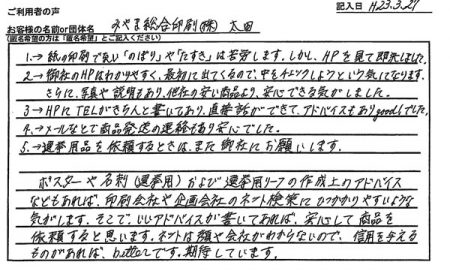 ご利用者の声
記入日 H23.3.27
お客様の名前or団体名 みやま総合印刷(株) 太田
(匿名希望の方は「匿名希望」とご記入ください)
1.→ 紙の印刷で無い「のぼり」や「たすき」は苦労します。しかし、HPを見て即決しました。
2.→ 御社のHPはわかりやすく、最初に出てくるので、中をチェックしようという気になります。
さらに、写真や説明もあり、他社の安い商品より、安心できる気がしました。
3.→ HPにTELがきちんと書いてあり、直接話ができて、アドバイスもありgoodでした。
4.→ メールなどで商品発送の連絡もあり安心でした。
5.→ 選挙用品を依頼するときは、また御社にお願いします。
ポスターや名刺(選挙用)および選挙用リーフの作成上のアドバイス
などもあれば、印刷会社や企画会社のネット検索にひっかかりやすいような
気がします。そこで、いいアドバイスが書いてあれば、安心して商品を
依頼すると思います。ネットは顔や会社がわからないので、信用を与える
ものがあれば、betterです。期待しています。